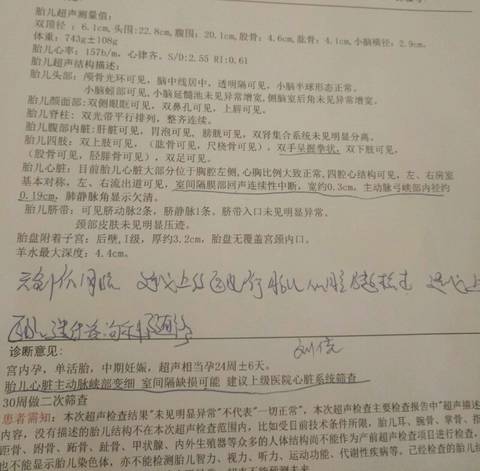 胎儿超声测量值:
双顶径 : 6.1cm,头围:22.8cm,腹围:20.1cm,股骨:4.6cm,肱骨:4.1cm,小脑横径:2.9cm.
体重: 743g±108g
胎儿心率: 157b/m, 心律齐。S/D:2.55 RI:0.61
胎儿超声结构描述:
胎儿头部: 颅骨光环可见, 脑中线居中, 透明隔可见, 小脑半球形态正常。
小脑蚓部可见,小脑延髓池未见异常增宽,侧脑室后角未见异常增宽。
胎儿颜面部:双侧眼眶可见, 双鼻孔可见, 上唇可见。
胎儿脊柱: 双光带平行排列, 整齐连续。
胎儿腹部内脏:肝脏可见, 胃泡可见, 膀胱可见, 双肾集合系统未见明显分离。
胎儿四肢: 双上肢可见, (肱骨可见, 尺桡骨可见), 双手呈握拳状, 双下肢可见,
(股骨可见, 胫腓骨可见), 双足可见。
胎儿心脏: 目前胎儿心脏大部分位于胸腔左侧,心胸比例大致正常,四腔心结构可见, 左、右房室
基本对称, 左、右流出道可见, 室间隔膜部回声连续性中断, 宽约0.3cm, 主动脉弓峡部内径约
0.19cm, 肺静脉角显示欠清。
胎儿脐带: 可见脐动脉2条, 脐静脉1条, 脐带入口未见明显异常。
颈部皮肤未见明显压迹。
胎盘附着子宫: 后壁,I级, 厚约3.2cm, 胎盘无覆盖宫颈内口。
羊水最大深度: 4.4cm。
诊断意见:
宫内孕, 单活胎, 中期妊娠, 超声相当孕24周±6天。
胎儿心脏主动脉峡部变细 室间隔缺损可能 建议上级医院心脏系统筛查
30周做二次筛查
患者需知: 本次超声检查结果"未见明显异常"不代表"一切正常", 本次超声检查主要检查报告中"超声描述
内容, 没有描述的胎儿结构不在本次超声检查范围内, 比如受目前技术条件限, 胎儿耳、腕骨、掌骨、指
距骨、跗骨、跖骨、趾骨、甲状腺、内外生殖器等众多的人体结构尚不能作为产前超声检查项目进行检查,
也不能显示胎儿染色体, 亦不能检测胎儿智力、视力、听力、运动功能、代谢性疾病等。已经检查的胎儿